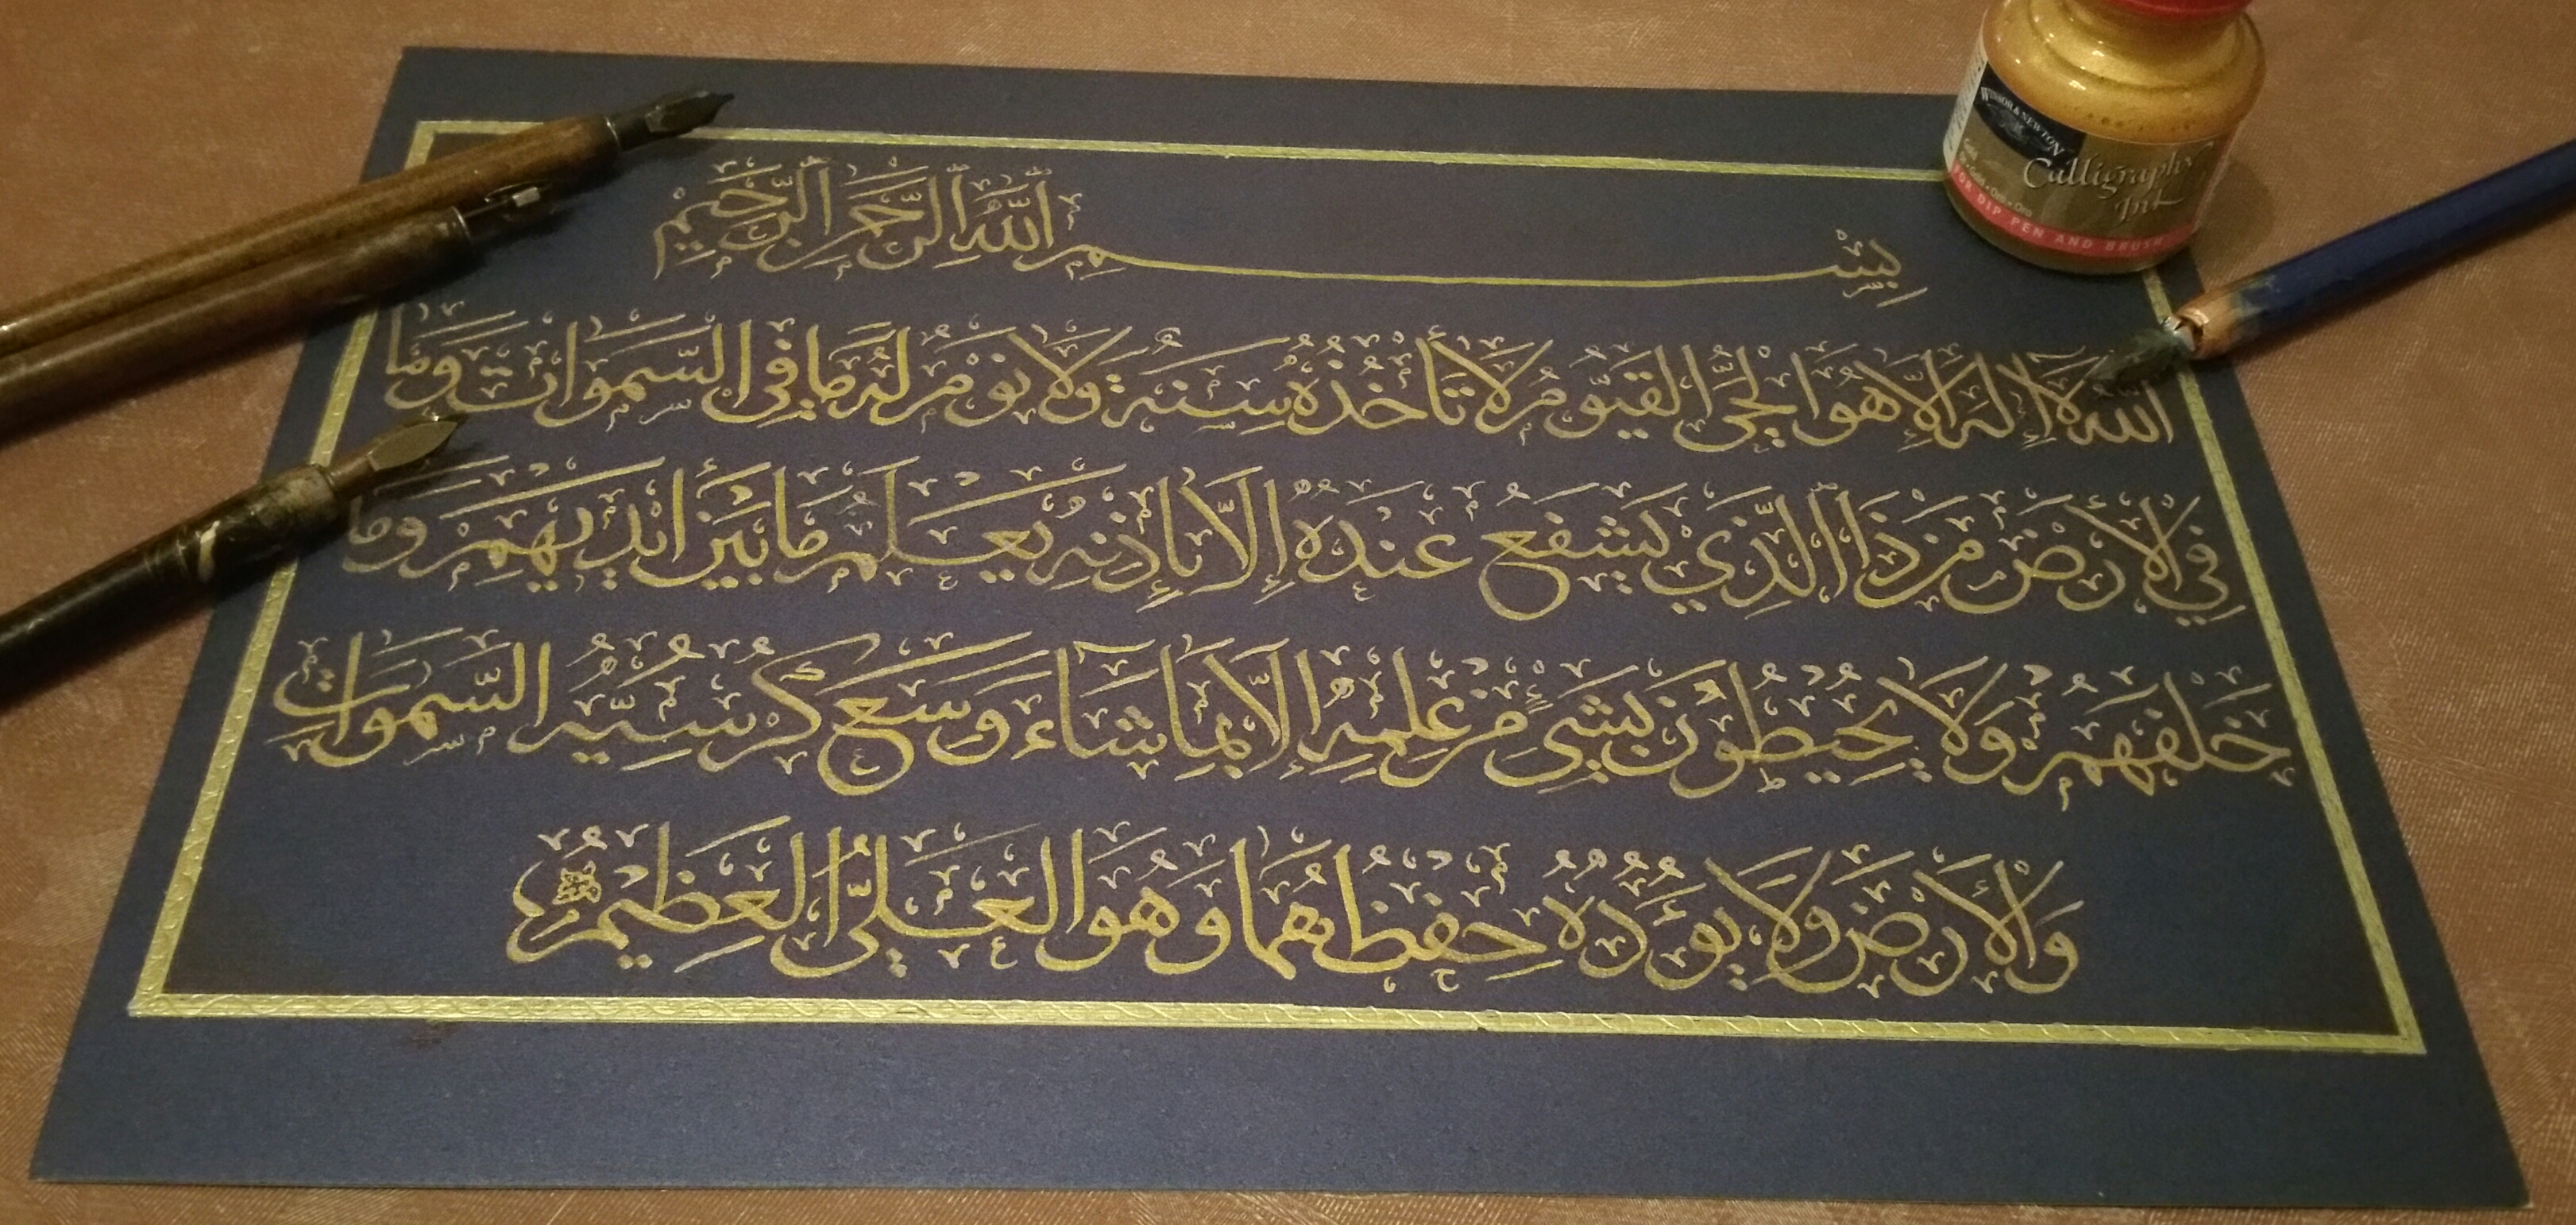 بِسْمِ اللَّهِ الرَّحْمَٰنِ الرَّحِيمِ
اللَّهُ لَا إِلَٰهَ إِلَّا هُوَ الْحَيُّ الْقَيُّومُ لَا تَأْخُذُهُ سِنَةٌ وَلَا نَوْمٌ لَهُ مَا فِي السَّمَوَاتِ وَمَا
فِي الْأَرْضِ مَنْ ذَا الَّذِي يَشْفَعُ عِنْدَهُ إِلَّا بِإِذْنِهِ يَعْلَمُ مَا بَيْنَ أَيْدِيهِمْ وَمَا
خَلْفَهُمْ وَلَا يُحِيطُونَ بِشَيْءٍ مِنْ عِلْمِهِ إِلَّا بِمَا شَاءَ وَسِعَ كُرْسِيُّهُ السَّمَوَاتِ
وَالْأَرْضَ وَلَا يَؤُدُهُ حِفْظُهُمَا وَهُوَ الْعَلِيُّ الْعَظِيمُ
WINSOR & NEWTON
Calligraphy
Ink
Gold • Oro
FOR DIP PEN AND BRUSH